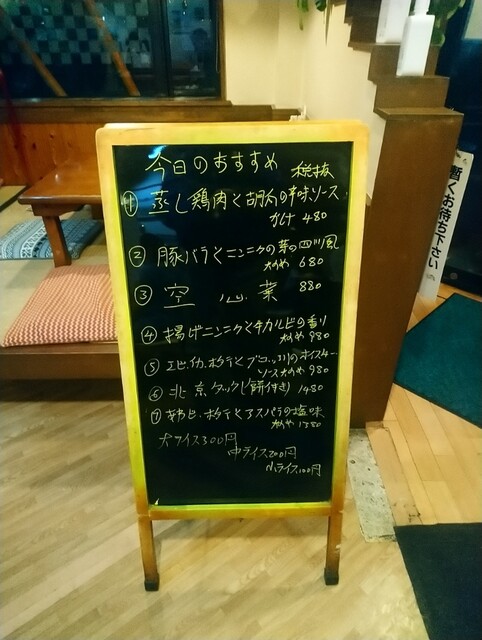 今日のおすすめ 税抜
① 蒸し鶏肉と胡瓜の辛味ソース
かけ 480
② 豚バラとニンニクの芽の四川風
炒め 680
③ 空心菜 880
④ 揚げニンニクと牛カルビの香り
炒め 980
⑤ エビ、イカ、ホタテとブロッコリーのオイスター
ソース炒め 980
⑥ 北京ダック(餅付き) 1480
⑦ ホタテとアスパラの塩味
炒め
大ライス300円
中ライス200円
小ライス100円
暫くお待ち下さい